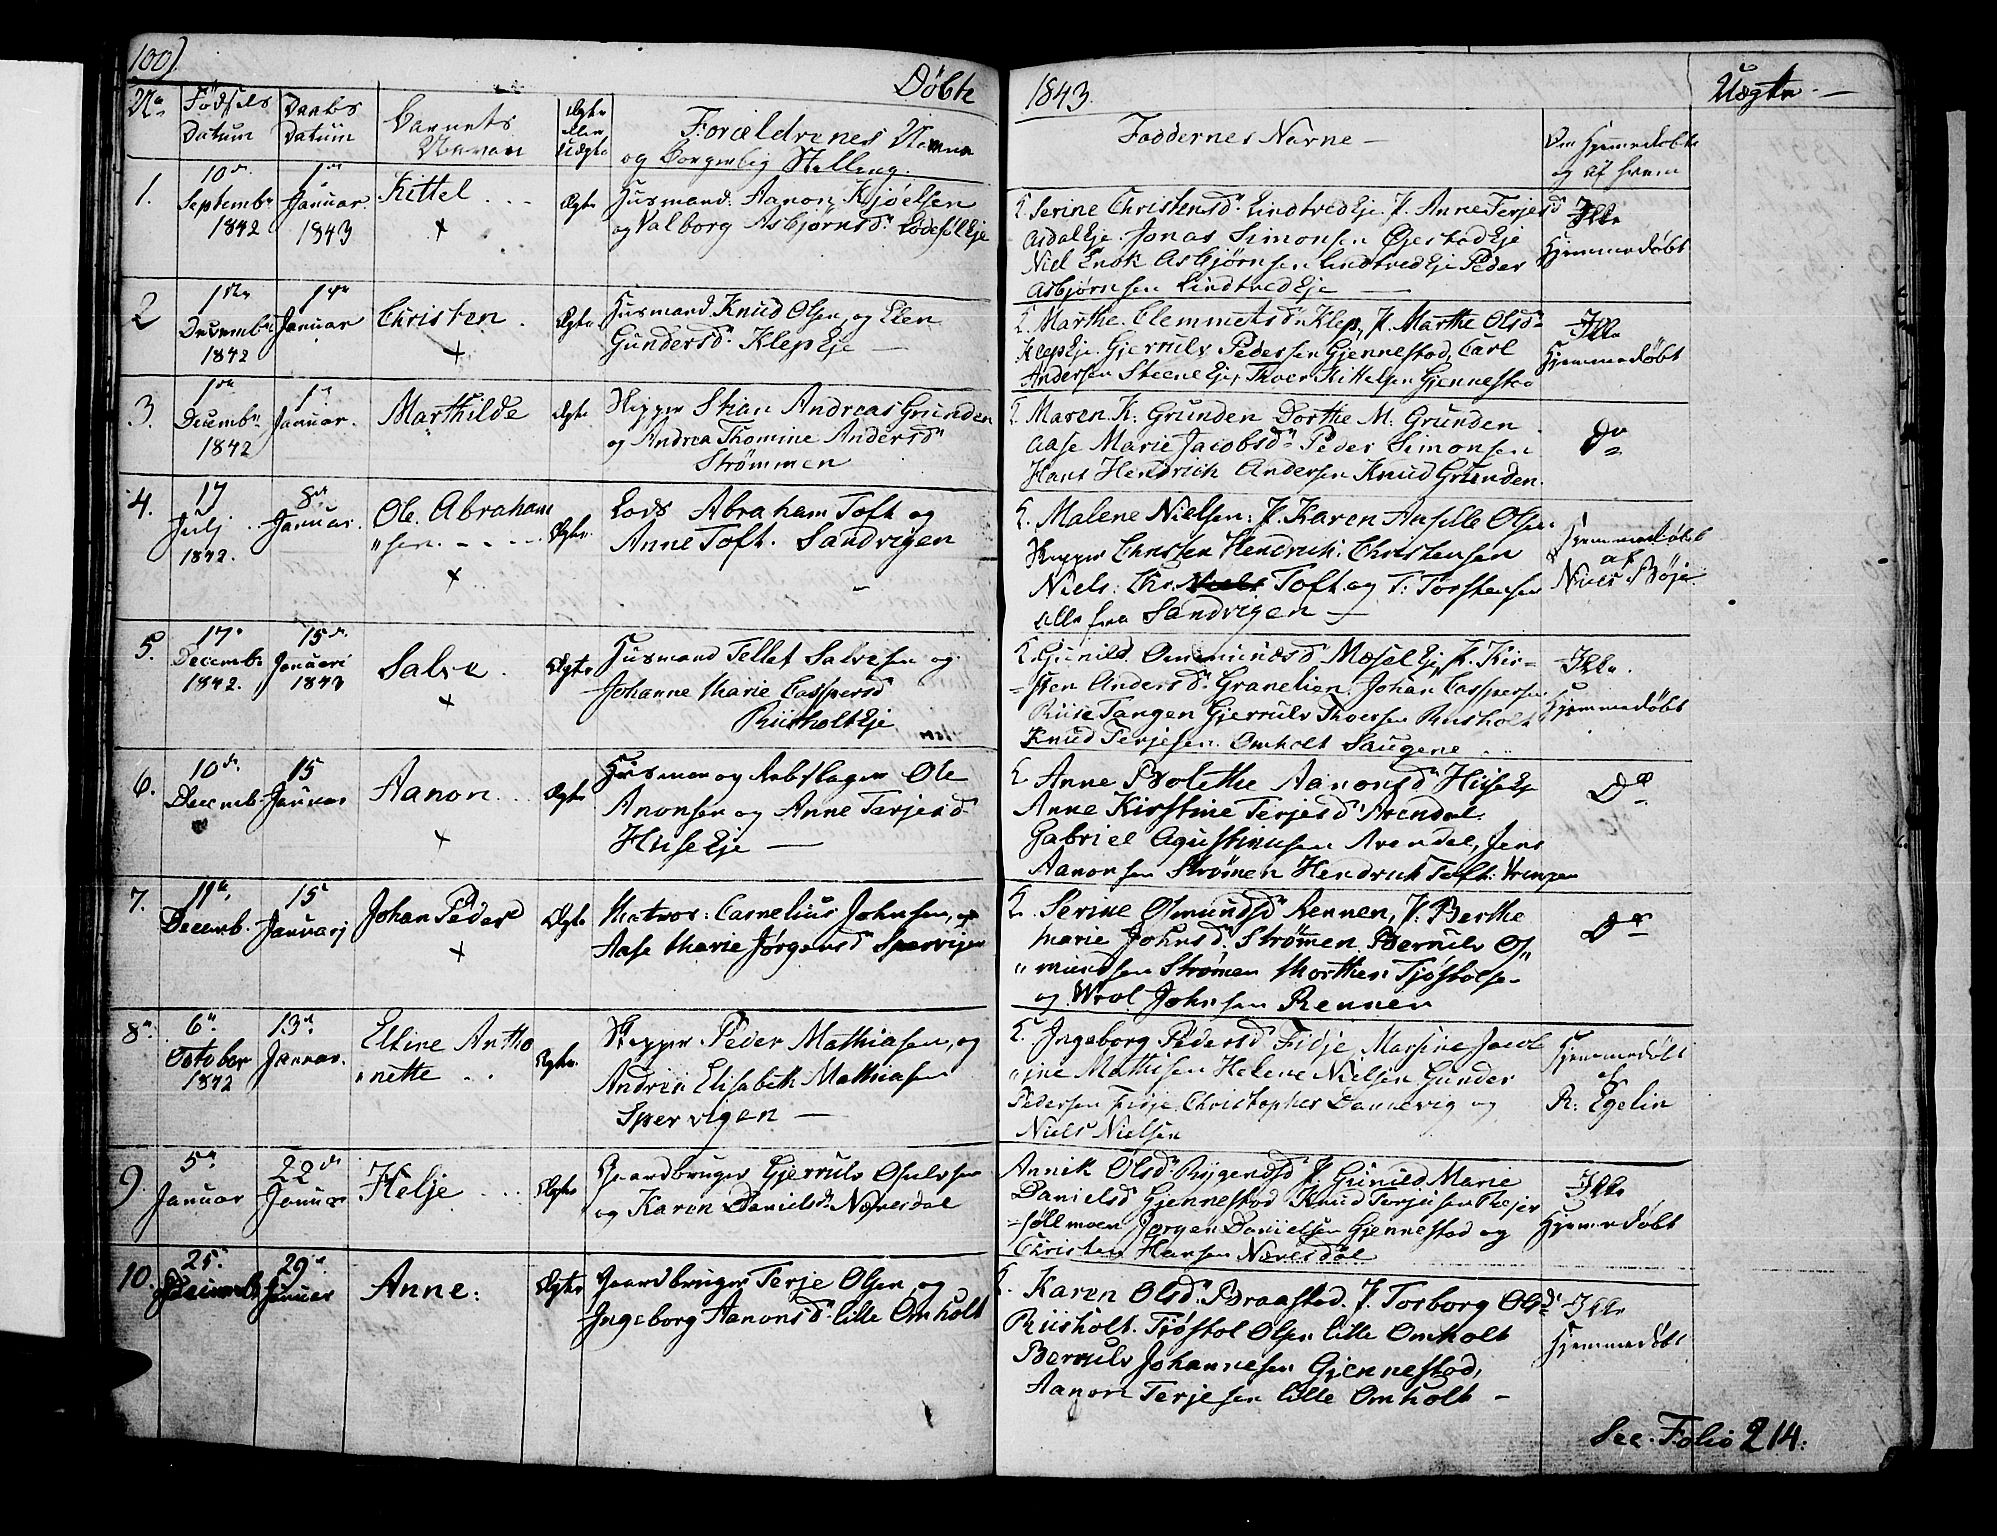 100)
Døbte 1843. Uægte —
No Fødsels Datum
Daabs Datum
Barnets Navn
Ægte eller Uægte
Forældrenes Navne
og Borgerlig Stelling.
Faddernes Navne —
Om Hjemmedøbt
og af hvem
1. 10de Septembr 1842
1ste Januar 1843
Kittel
Ægte
Husmand Aanon Kjøelsen
og Valborg Asbjørnsd.
Serine Christensd. Lindtved Eje. J. Anne Terjesd
Asdal Eje. Jonas Simonsen Øiestad Eje
Niel Enok Asbjørnsen Lindtved Eje Peder
Asbjørnsen Lindtved Eje —
Ikke
Hjemmedøbt
2 1ste Decembr 1842
1ste Januar
Christen
Ægte
Husmand Knud Olsen og Elen
Gundersd. Klep Eje —
Marthe Clemmetsd. Klep, J. Marthe Olsd.
Klep Eje. Gjerrulv Pedersen Gjennestad, Carl
Andersen Steene Eje, Thoer Kittelsen Gjennestad
Ikke
Hjemmedøbt
3. 1ste Decembr 1842
1ste Januar.
Marthilde
Ægte
Skipper Stian Andreas Grunden
og Andrea Thomine Andersd.
Strømmen
Maren K: Grunden Dorthe M: Grunden
Aase Marie Jacobsd. Peder Simonsen
Hans Hendrich Andersen Knud Grunden.
do
4. 17 Julj 1842.
8de Januar
Ole Abraham
"sen
Ægte
Lods Abraham Toft og
Anne Toft. Sandvigen
Malene Nielsen: J. Karen Olsen
Skipper Christen Hendrich: Christensen
Niels: Chr. Toft og T: Torstensen
alle fra Sandvigen —
Hjemmedøbt
af
Niels Bøje
5. 17de Decembr 1842.
15de Januari 1843
Salve
Ægte
Husmand Tellef Salvesen og
Johanne Marie Caspersd
Riisholt Eje
Gunild Omundsd Mæsel Eje, J. Kir-
-sten Andersd. Granelien. Johan Caspersen
Riise Tangen Gjerrulv Thorsen Riisholt
Knud Terjesen Omholt Saugene
Ikke
Hjemmedøbt
6. 10de Decemb.
15 Januar
Aanon
Ægte
Husmand og Rebslager Ole
Anonsen og Anne Terjesd
Huse Eje —
Anne Bolethe Aanonsd. Huse Eje
Anne Kirstine Terjesd Arendal
Gabriel Agustinusen Arendal, Jens
Aanonsen Strømen Hendrich Toft:
Do
7. 11te Decemb.
15de Januarj
Johan Peder
Ægte
Matros: Carnelius Johnsen, og
Aase Marie Jørgensd Spervigen
Serine Osmundsd Rennen, J. Berthe
Marie Johnsd. Strømmen Berrulv Os,,
,,mundsen Strømen Morthen Tjøstolse-
og Wrol Johnsen Rennen
Do
8de 6te October 1842
13de Januar.
Eltine Antho
,,nette
Ægte
Skipper Peder Mathiasen, og
Andrea Elisabeth Mathiasen
Spervigen —
Ingeborg Pedersd Fidje, Massine Jacob
,,ine Mathisen Helene Nielsen Gunder
Pedersen Fidje, Christopher Dannevig og
Niels Nielsen
Hjemmedøbt
af
R: Egelin
9. 5te Januar
22de Januar
Helje
Ægte
Gaardbruger Gjerrulv Osulvsen
og Karen Danielsd. Næresdal
Annik Olsd. J. Gunild Marie
Danielsd Gjennestad Knud Terjesen
-føllmoen Jørgen Danielsen Gjennestad og
Christen Hansen Næresdal
Ikke
Hjemmedøbt
10. 25de Decemb
29de Januar
Anne:
Ægte
Gaardbruger Terje Olsen og
Ingeborg Aanonsd. lille Omholt
Karen Olsd. Braastad. J. Torborg Olsd.
Riisholt. Tjøstol Olsen lille Omholt
Berrulv Johannesen Gjennestad,
Aanon Terjesen lille Omholt —
Ikke
Hjemmedøbt
See. Folio 214.